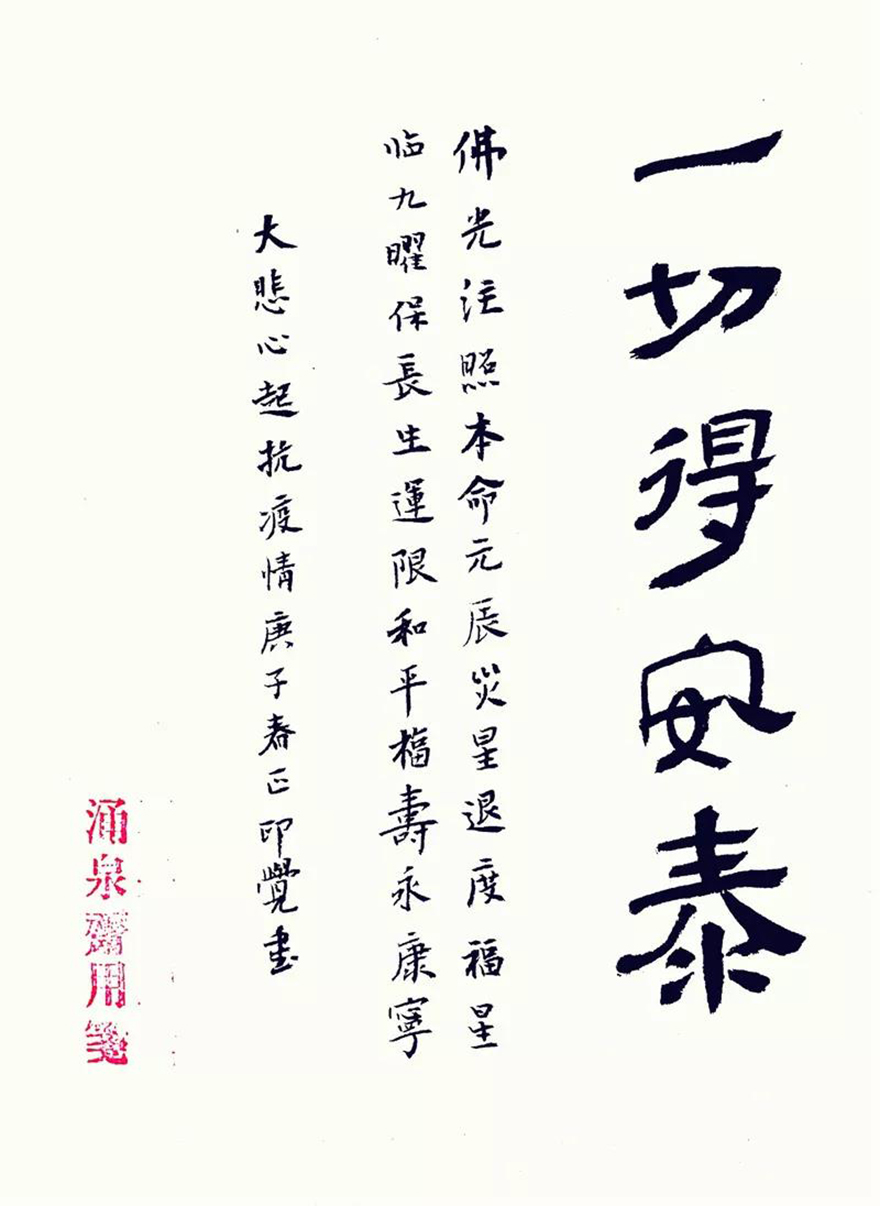 一切得安泰
佛光注照本命元辰災星退度福星
临九曜保長生運限和平福壽永康寧
大悲心起抗疫情庚子春正印覺書
涌泉齋用箋